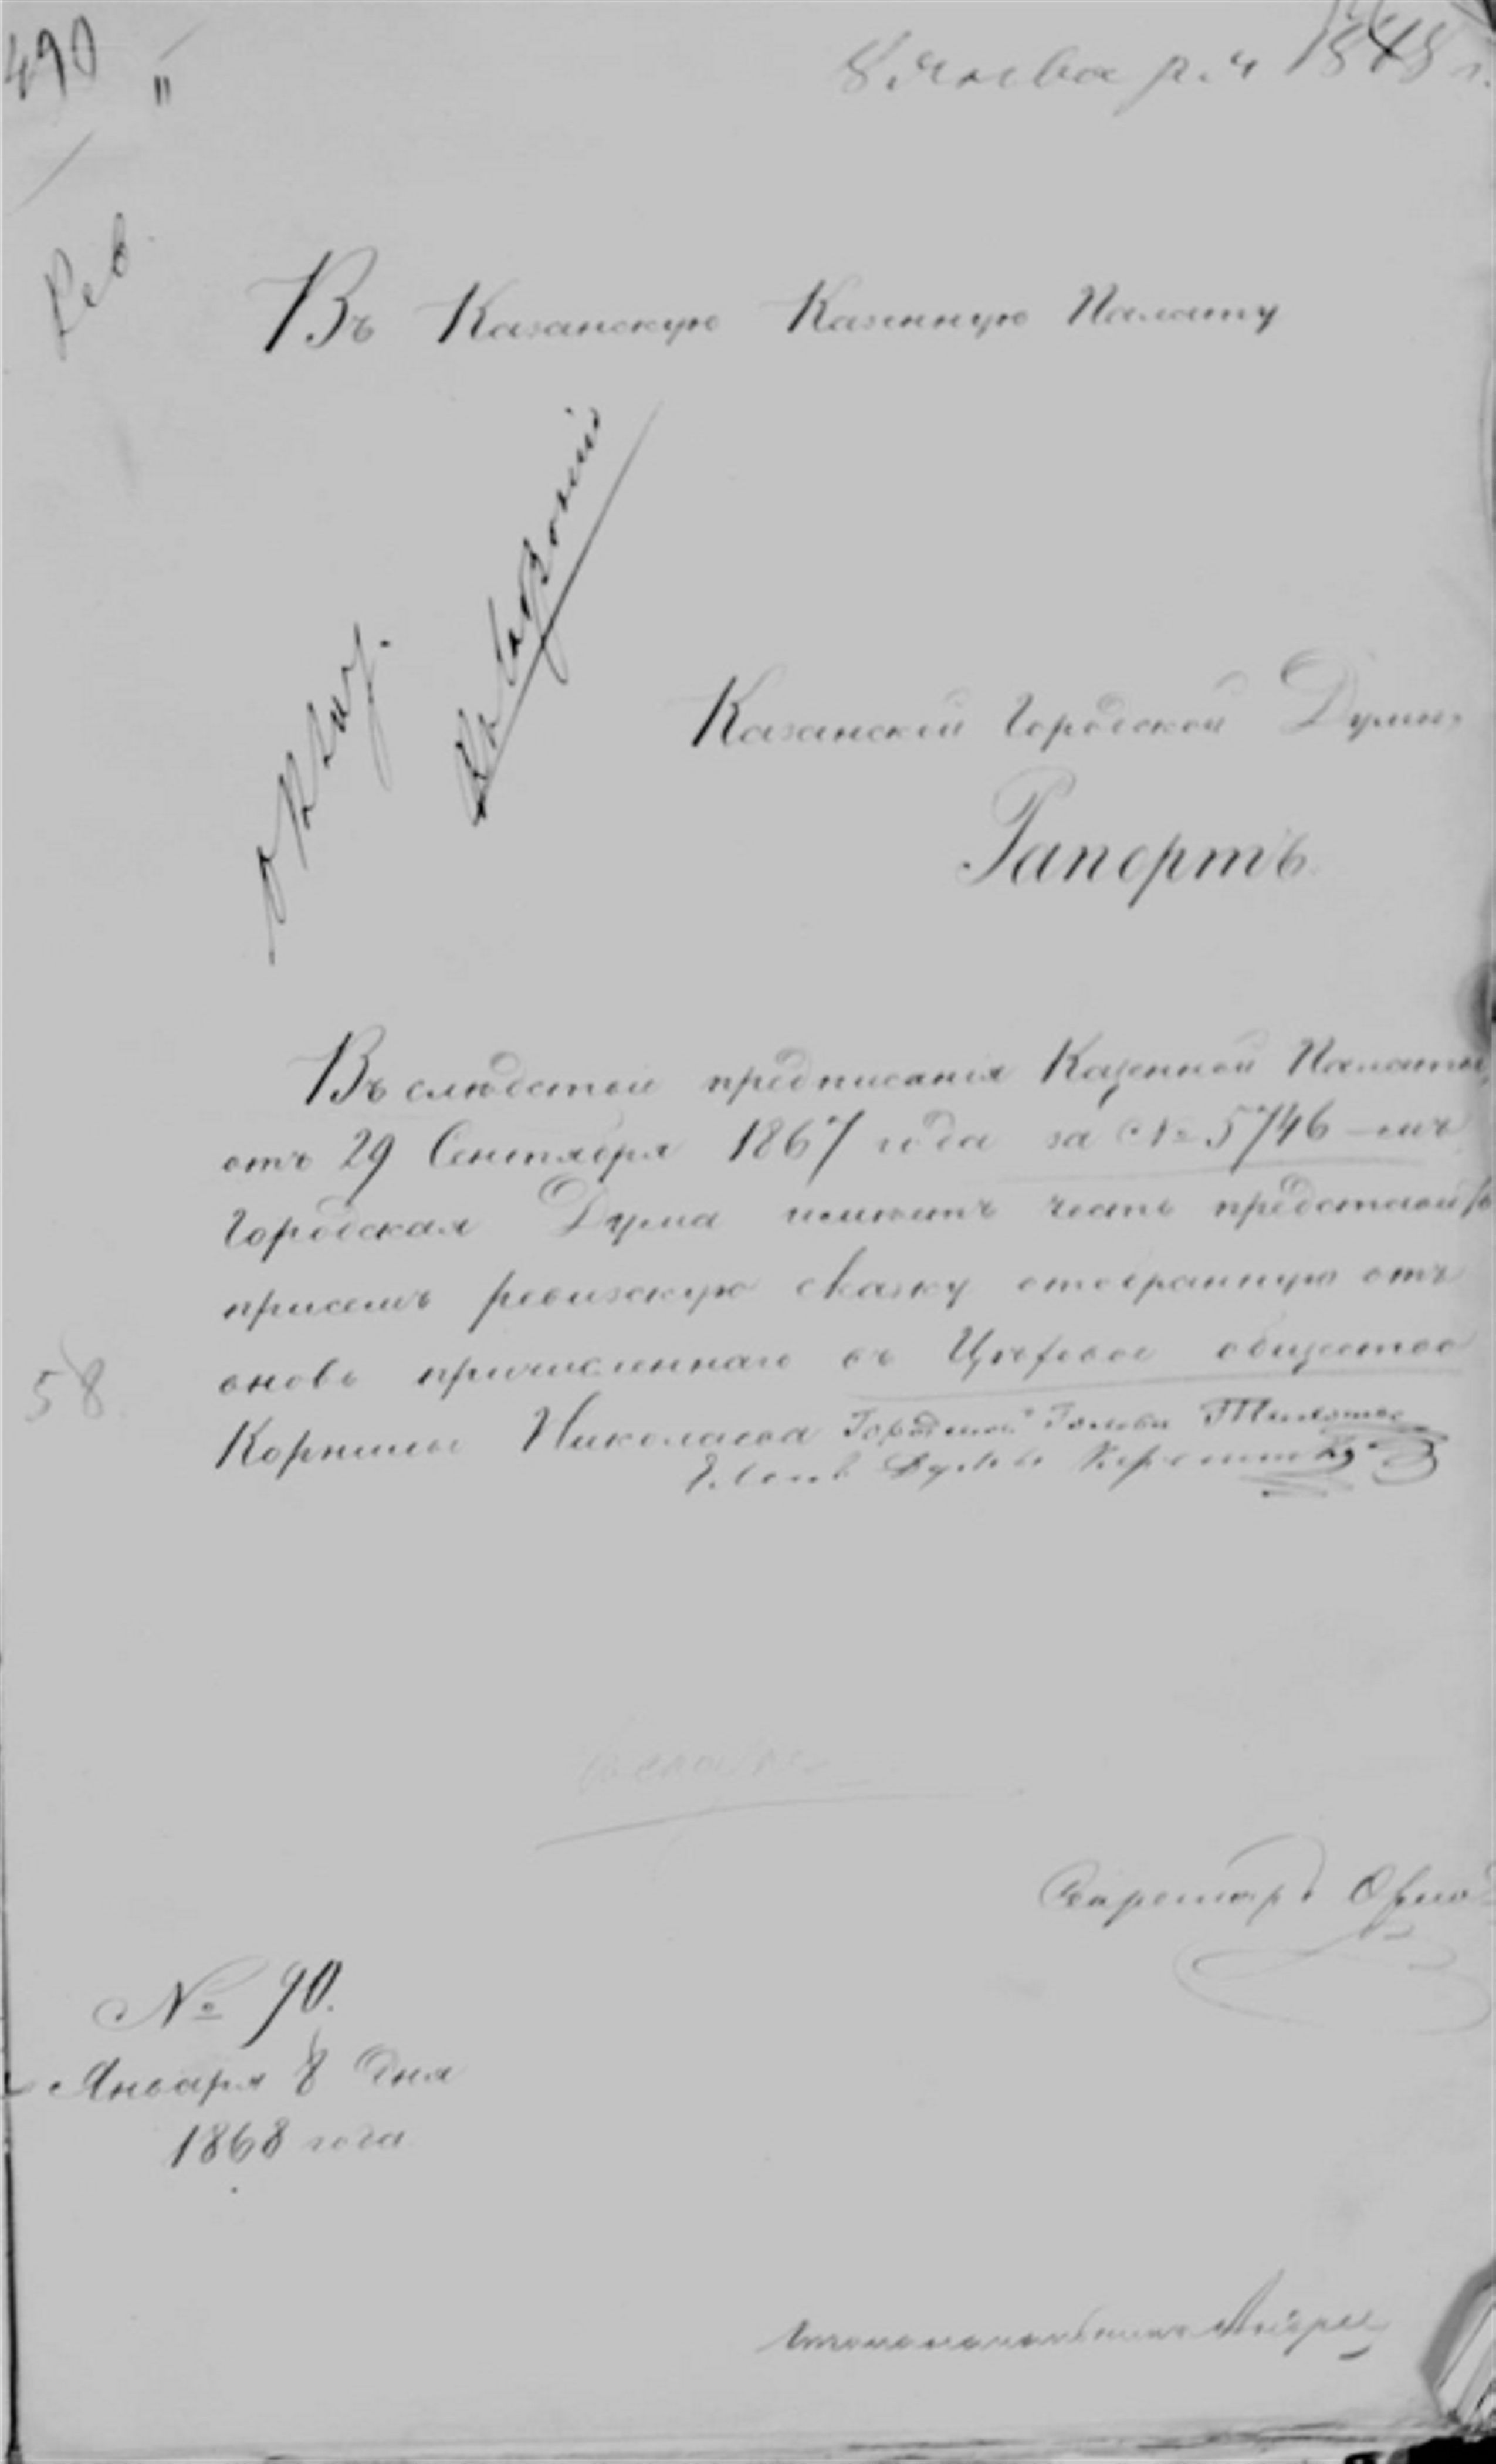 490
8 Января 1868 г.
Рев.
Въ Казанскую Казенную Палату
Казанской Городской Думы
Рапортъ
Въ слѣдствіи предписанія Казенной Палаты,
отъ 29 Сентября 1867 года за № 5746-мъ
Городская Дума имѣетъ честь представить
присемъ ревизскую сказку отобранную отъ
вновь причисленнаго въ Цеховое общество
58
Корнилы Николаева Городской Голова
Секретарь
№ 90.
Января 8 дня
1868 года
Столоначальникъ